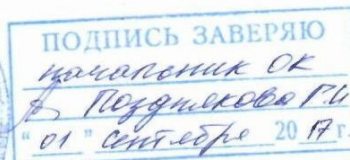 ПОДПИСЬ ЗАВЕРЯЮ
начальник ОК
Позднякова Г.И
"01" сентября 2017 г.